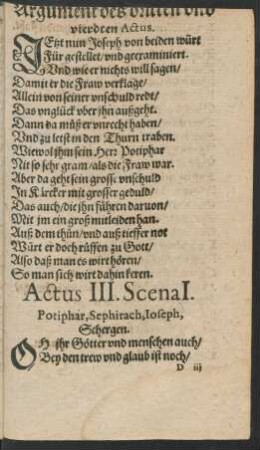 Argument des dritten vnd
vierdten Actus.
JEtzt nun Joseph von beiden würt
Für gestellet/vnd geexaminiert.
Vnd wie er nichts will sagen/
Damit er die Fraw verklage/
Allein von seiner vnschuld redt/
Das vnglück vber jhn außgeht.
Dann da müst er vnrecht haben/
Vnd zu letst in den Thurn traben.
Wiewol jhm sein Herr Potiphar
Nit so sehr gram/als die Fraw war.
Aber da geht sein gross. vnschuld
In Kircker mit grosser gedult/
Das auch/die jhn führen daruon/
Mit jm ein groß mitleiden han.
Auß dem thün/vnd auß tieffer not
Würt er doch rüffen zu Gott/
Also daß man es wirt hören/
So man sich wirt dahin keren.
Actus III. Scena I.
Potiphar, Sephirach, Ioseph,
Schergen.
OH ihr Götter vnd menschen auch/
Bey den trew vnd glaub ist noch/
D iij